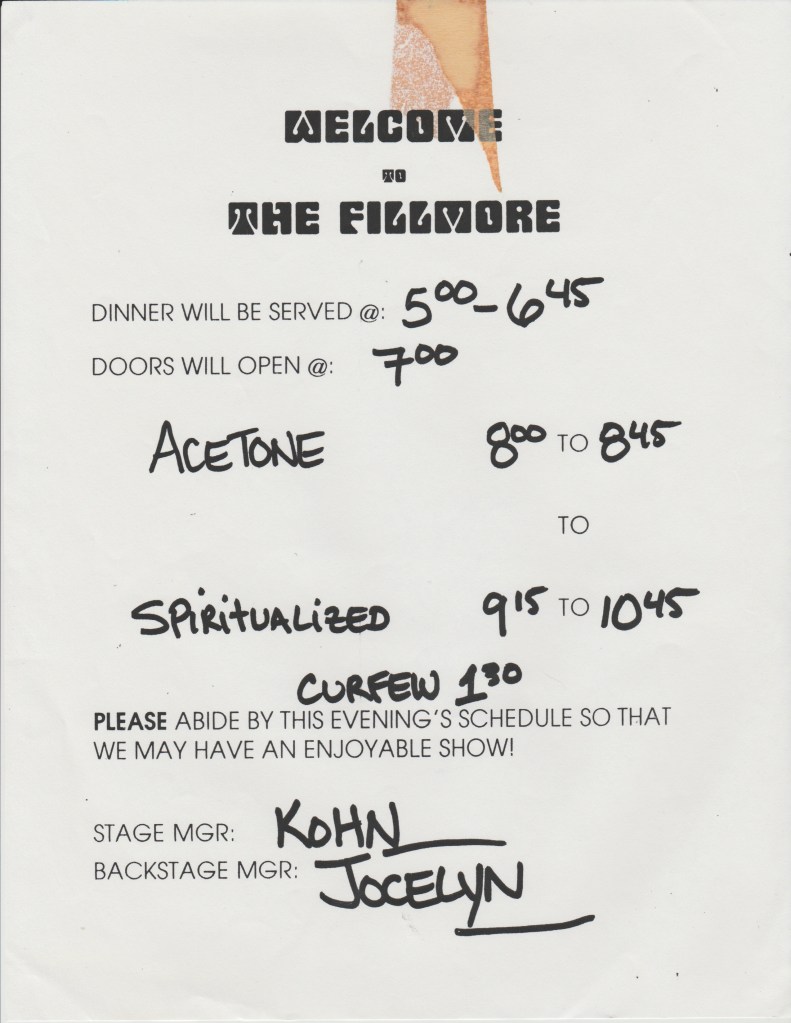 WELCOME
TO
THE FILLMORE
DINNER WILL BE SERVED @: 5:00 - 6:45
DOORS WILL OPEN @: 7:00
ACETONE 8:00 TO 8:45
TO
SPIRITUALIZED 9:15 TO 10:45
CURFEW 1:30
PLEASE ABIDE BY THIS EVENING'S SCHEDULE SO THAT
WE MAY HAVE AN ENJOYABLE SHOW!
STAGE MGR: KOHN
BACKSTAGE MGR: JOCELYN